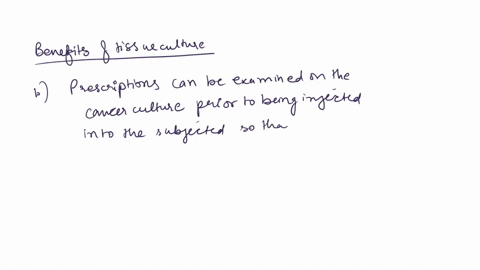 Benefits of tissue culture
b) Prescriptions can be examined on the
cancer culture prior to being injected
into the subjected so tha